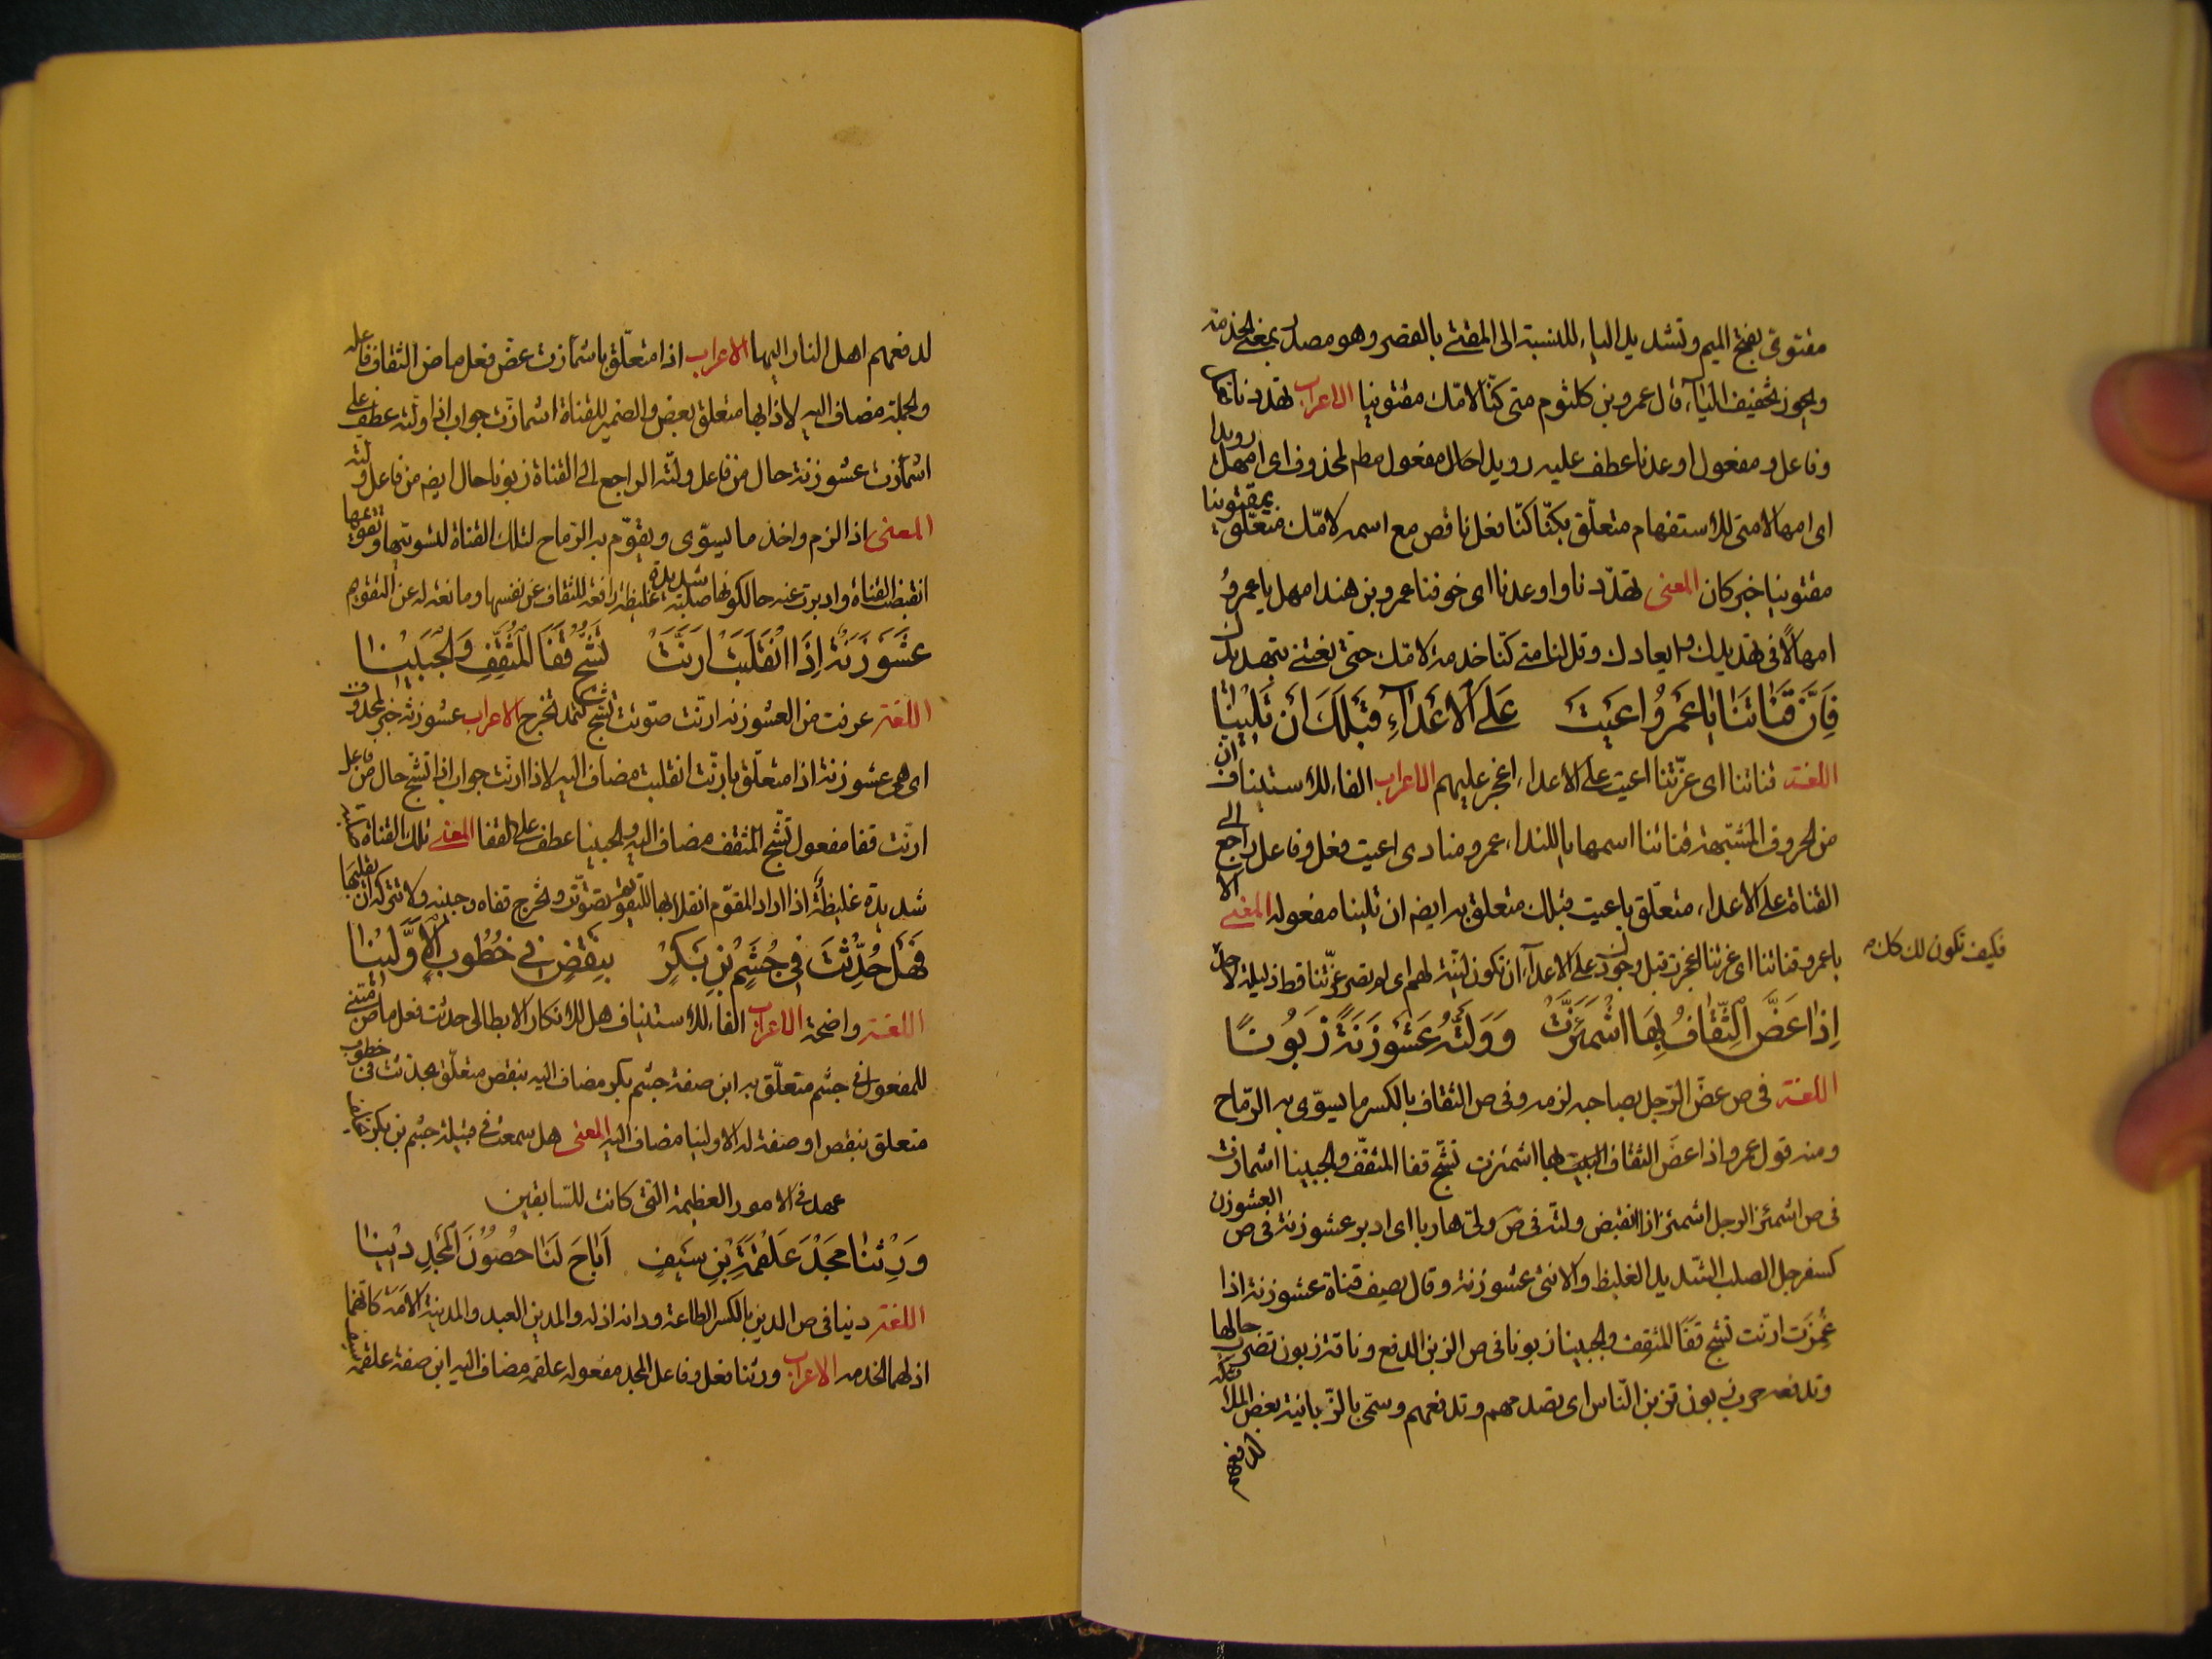 مقتوىّ بفتح الميم وتشديد الياء للنسبة الى المقتى بالقصر وهو مصدر بمعنى الخدمة
ويجوز تخفيف الياء قال عمرو بن كلثوم متى كنّا لامّك مقتوينا الاعراب تهددنا
وفاعل ومفعول اوعدنا عطف عليه رويدا حال مفعول مطم لمحذوف اى امهل رويدا
اى امهالا متى للاستفهام متعلّق بكنّا كنّا فعل ناقص مع اسمه لامّك متعلّق بمقتوينا
مقتوينا خبر كان المعنى تهدّدنا واوعدنا اى خوفنا عمرو بن هند امهل يا عمرو
امهالاً فى تهديدك وايعادك وقل لنا متى كنّا خدمة لامّك حتى تعتنى بتهديدك
فَاِنَّ قَنَاتَنَا يَا عَمْرُو اَعْيَتْ عَلَى الْاَعْدَآءِ قَبْلَكَ اَنْ تَلِيْنَا
اللغة قناتنا اى عزّتنا اعيت على الاعداء اعجز عليهم الاعراب الفاء للاستيناف انّ
من الحروف المشبّهة قناتنا اسمها يا للنداء عمرو منادى اعيت فعل وفاعل راجع الى
القناة على الاعداء متعلّق باعيت قبلك متعلق به ايضم ان تلينا مفعوله المعنى الا
يا عمرو قناتنا اى عزتنا اعجزت قبل وجودك على الاعدآء ان تكون لينة لهم اى لم تصر عزّتنا قط ذليلة لاحد
فكيف تكون لك كك
اِذَا عَضَّ الثِّقَافُ بِهَا اشْمَئَزَّتْ وَوَلَّتْهُ عَشَوْزَنَةً زَبُونًا
اللغة فى ص عضّ الرّجل بصاحبه لزمه وفى ص الثقاف بالكسر ما يسوّى به الرّماح
ومنه قول عمرو اذا عضّ الثقاف البيت بها اشمئزت تشجّ قفا المثقّف والجبينا اشمازت
فى ص اشمئز الرجل اشمئز اذا انقبض ولته فى ص ولّى هاربا اى ادبر عشوزنة فى ص العشوزن
كسفرجل الصلب الشديد الغليظ والانثى عشوزنة وقال يصف قناة عشوزنة اذا
غُمِزَت ارنّت تشج قَفَا المثقِف والجبينا زبونا فى ص الزبن الدفع وناقة زبون تضرب حالبها
وتدفعه حرب زبون تزبن النّاس اى تصدمهم وتدفعهم وسمّى بالزّبانية بعض الملائكة
لدفعهم
لدفعهم اهل النار اليها الاعراب اذا متعلّق باشمأزت عضّ فعل ماض الثقاف فاعله
والجملة مضاف اليه لاذا بها متعلق بعض والضمير للقناة اشمازّت جواب اذا ولّته عطف على
اشمأزت عشوزنة حال من فاعل ولّته الراجع الى القناة زبونا حال ايضم من فاعل ولّته
المعنى اذا الزم واخذ ما يسوّى ويقوّم به الرّماح لتلك القناة لتسويتها وتقويمها
انقبضت القناة وادبرت عنه حالكونها صلبة شديدة غليظة دافعة للثقاف عن نفسها ومانعة له عن التقويم
عَشَوْزَنَةً اِذَا انْقَلَبَتْ اَرَنَّتْ تَشُجُّ قَفَا الْمُثَقِّفِ وَالْجَبِيْنَا
اللغة عرفت من العشوزنة ارنّت صوّتت تشجّ كتمد تجرح الاعراب عشوزنة خبر لمحذوف
اى هى عشوزنة اذا متعلّق بارنّت انقلبت مضاف اليه لاذا ارنّت جواب اذا تشجّ حال من فاعل
ارنّت قفا مفعول تشّج المثقف مضاف اليه والجبينا عطف على القفا المعنى تلك القناة كانت
شديدة غليظةً اذا اراد المقوّم انقلابها للتقويم تصوّت وتجرح قفاه وجبينه ولا تتركه ان يقلبها
فَهَلْ حُدِّثْتَ فِى جُشَمِ بْنِ بَكْرٍ بِنَقْصٍ فِى خُطُوْبِ الْاَوَّلِيْنَا
اللغة واضحة الاعراب الفاء للاستيناف هل للانكار الابطالى حدثت فعل ماض مبنى
للمفعول فى جشم متعلّق به ابن صفة جشم بكر مضاف اليه بنقص متعلّق بحدثت فى خطوب
متعلق بنقص او صفة له الاولينا مضاف اليه المعنى هل سمعت فى قبيلة جشم بن بكر
عهد فى الامور العظيمة التى كانت للسّابقين
وَرِثْنَا مَجْدَ عَلْقَمَةَ بْنِ سَيْفٍ اَبَاحَ لَنَا حُصُوْنَ الْمَجْدِ دِيْنَا
اللغة دينا فى ص الدين بالكسر الطاعة ودانه اذله والمدين العبد والمدينة الامَة كانّهما
اذلهما الخدمة الاعراب ورثنا فعل وفاعل المجد مفعوله علقمة مضاف اليه ابن صفة علقمة سيف